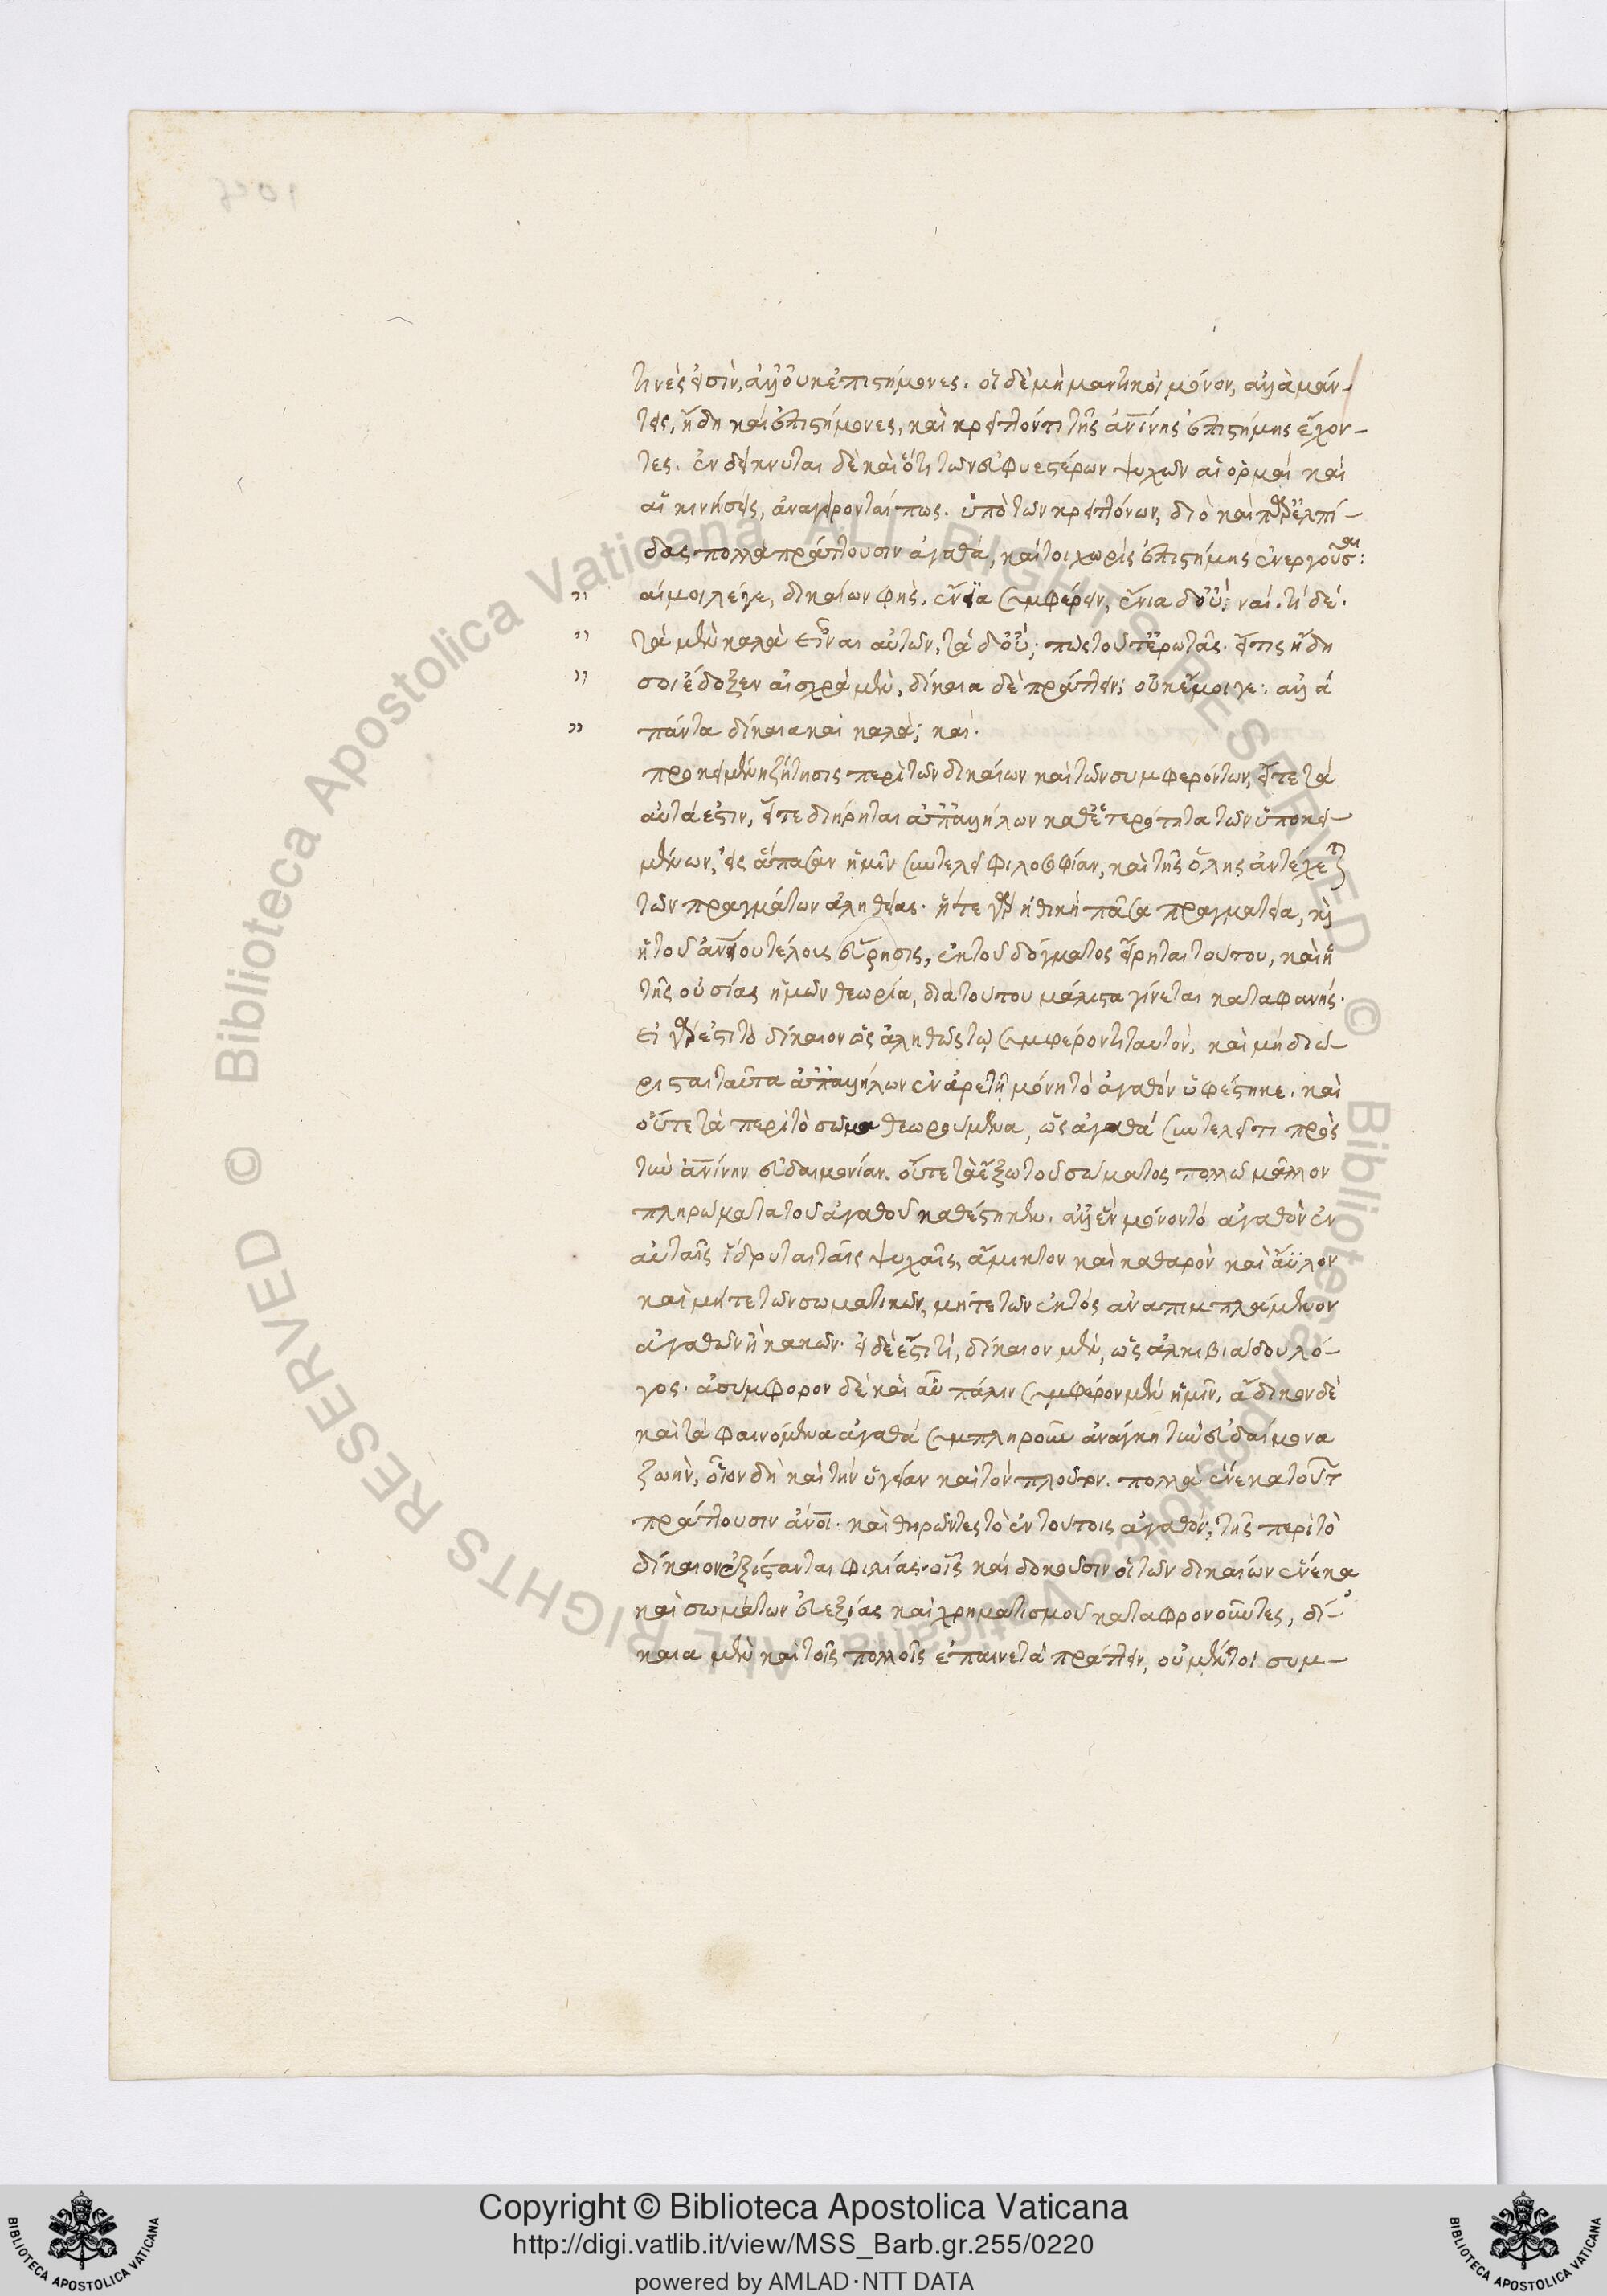 τινές εἰσιν, ἀλλ' οὐκ ἐπιστήμονες. οἱ δὲ μὴ μαντικοὶ μόνον, ἀλλὰ μάν-
τεις, ἤδη καὶ ἐπιστήμονες, καὶ κρείττόν τι τῆς ἀνίνης ἐπιστήμης ἔχον-
τες. ἐνδείκνυται δὲ καὶ ὅτι τῶν εὐφυεστέρων ψυχῶν αἱ ὁρμαὶ καὶ
αἱ κινήσεις, ἀναγείρονταί πως ὑπὸ τῶν κρειττόνων, διὸ καὶ παρ' ἐλπί-
δας πολλὰ πράττουσιν ἀγαθά, καίτοι χωρὶς ἐπιστήμης ἐνεργοῦσαι:
" αί μοι λέγε, δικαίων φῄς. ἔνια συμφέρειν, ἔνια δ' οὔ; ναί. τί δέ.
" τὰ μὲν καλὰ εἶναι αὐτῶν, τὰ δ' οὔ; πῶς τοῦτ' ἐρωτᾷς. εἴ τις ἤδη
" σοι ἔδοξεν αἰσχρὰ μὲν, δίκαια δὲ πράττειν; οὐκ ἔμοιγε: ἀλλὰ
" πάντα δίκαια καὶ καλά; ναί.
προκειμένη ζήτησις περὶ τῶν δικαίων καὶ τῶν συμφερόντων, εἴτε τὰ
αὐτά ἐστιν, εἴτε διῄρηται ἀπ' ἀλλήλων καθ' ἑτερότητα τῶν ὑποκει-
μένων, εἰς ἅπασαν ἡμῖν συντελεῖ φιλοσοφίαν, καὶ τῆς ὅλης ἀντέχεται
τῶν πραγμάτων ἀληθείας. ἥ τε γὰρ ἠθικὴ πᾶσα πραγματεία, καὶ
ἡ τοῦ ἀνίου τέλους εὕρησις, ἐκ τοῦ δόγματος εἴρηται τούτου, καὶ ἡ
τῆς οὐσίας ἡμῶν θεωρία, διὰ τούτου μάλιστα γίνεται καταφανής.
εἰ γάρ ἐστι τὸ δίκαιον ὡς ἀληθῶς τῷ συμφέροντι ταυτόν, καὶ μὴ διώ-
ρισται ταῦτα ἀπ' ἀλλήλων ἐν ἀρετῇ μόνῃ τὸ ἀγαθὸν ὑφέστηκε. καὶ
οὔτε τὰ περὶ τὸ σῶμα θεωρούμενα, ὡς ἀγαθὰ συντελεῖ τι πρὸς
τὴν ἀνίνην εὐδαιμονίαν. οὔτε τὰ ἔξω τοῦ σώματος πολλῷ μᾶλλον
πληρώματα τοῦ ἀγαθοῦ καθέστηκεν. ἀλλ' ἓν μόνον τὸ ἀγαθὸν ἐν
αὐταῖς ἵδρυται ταῖς ψυχαῖς, ἄμικτον καὶ καθαρὸν καὶ ἄϋλον
καὶ μήτε τῶν σωματικῶν, μήτε τῶν ἐκτός ἀναπιμπλάμενον
ἀγαθῶν ἢ κακῶν. εἰ δὲ ἔστι τί, δίκαιον μὲν, ὡς ἀλκιβιάδου λό-
γος. ἀσύμφορον δὲ καὶ αὖ πάλιν συμφέρον μὲν ἡμῖν, ἄδικον δὲ
καὶ τὰ φαινόμενα ἀγαθὰ συμπληροῦν ἀνάγκη τὴν εὐδαίμονα
ζωήν, οἷον δὴ καὶ τὴν ὑγείαν καὶ τὸν πλοῦτον. πολλὰ ἕνεκα τούτ
πράττουσιν ἄνοι. καὶ θηρῶντες τὸ ἐν τούτοις ἀγαθόν, τῆς περὶ τὸ
δίκαιον ἐξίστανται φιλίας. οἷς καὶ δοκοῦσιν οἱ τῶν δικαίων ἕνεκα
καὶ σωμάτων εὐεξίας καὶ χρηματισμοῦ καταφρονοῦντες, δί-
καια μὲν καὶ τοῖς πολλοῖς ἐπαινετὰ πράττειν, οὐ μέντοι συμ-
Copyright © Biblioteca Apostolica Vaticana
http://digi.vatlib.it/view/MSS_Barb.gr.255/0220
powered by AMLAD·NTT DATA
BIBLIOTECA APOSTOLICA VATICANA
BIBLIOTECA APOSTOLICA VATICANA
© Biblioteca Apostolica Vaticana ALL RIGHTS RESERVED
© Biblioteca Apostolica Vaticana ALL RIGHTS RESERVED